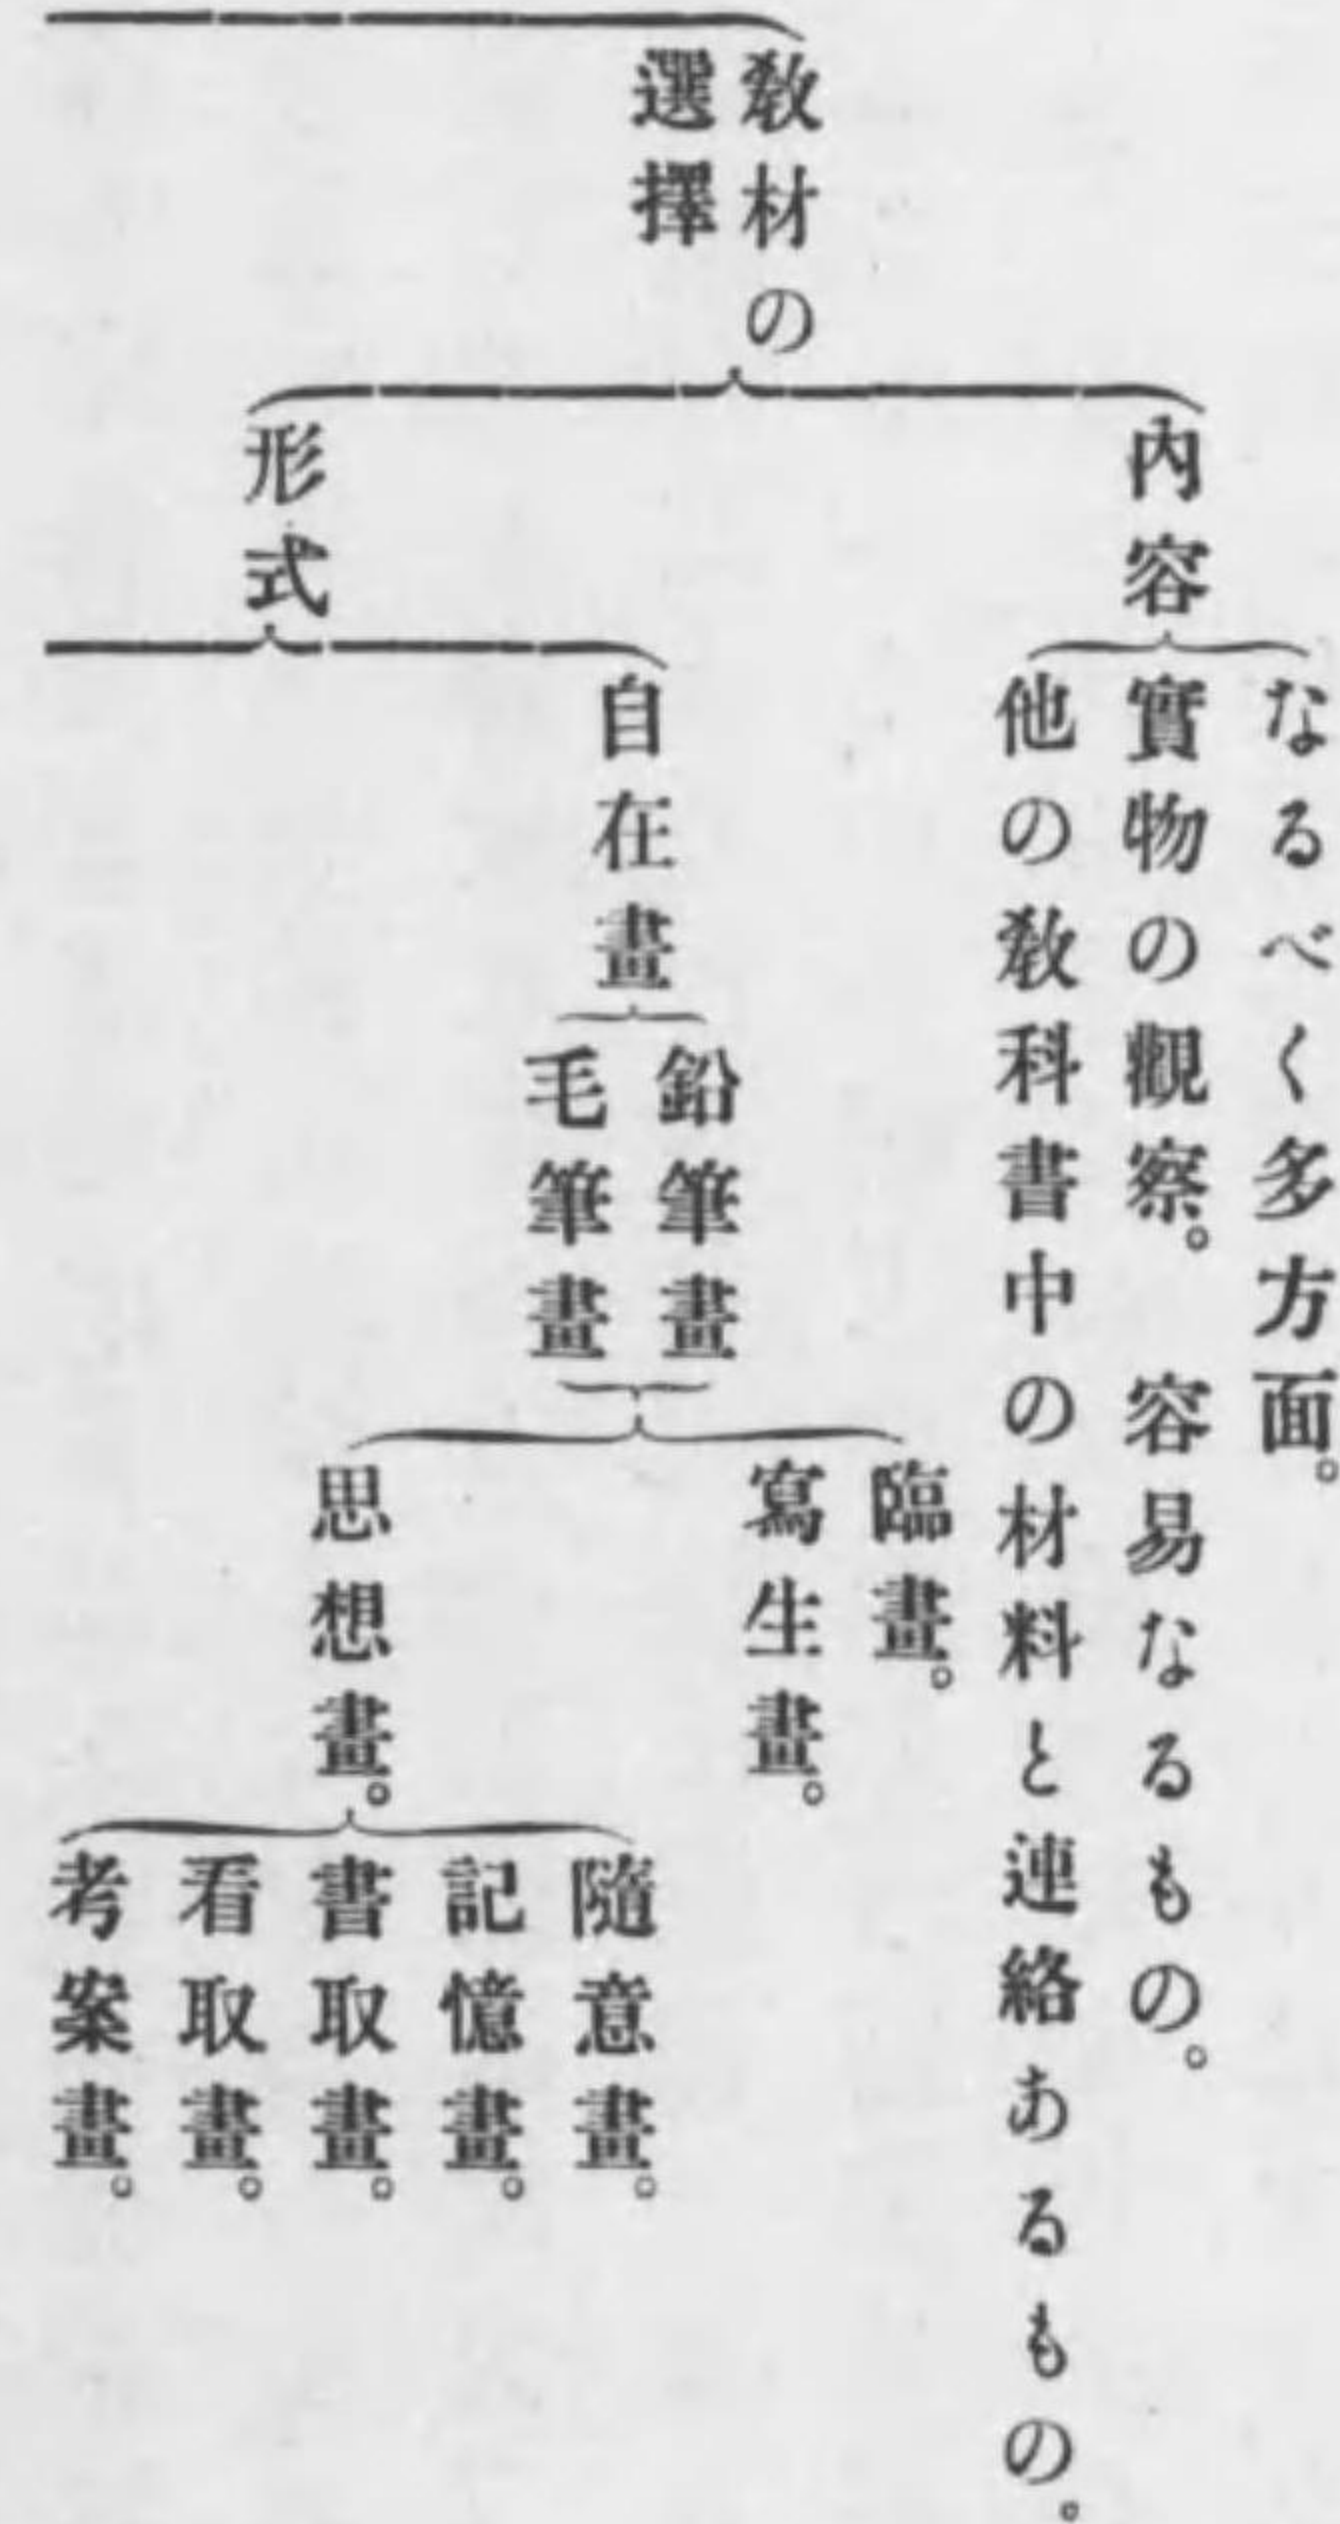 教材の
選擇
內容
なるべく多方面。
實物の觀察。　容易なるもの。
他の教科書中の材料と連絡あるもの。
形式
自在畫
鉛筆畫
毛筆畫
臨畫。
寫生畫。
思想畫。
隨意畫。
記憶畫。
書取畫。
看取畫。
考案畫。